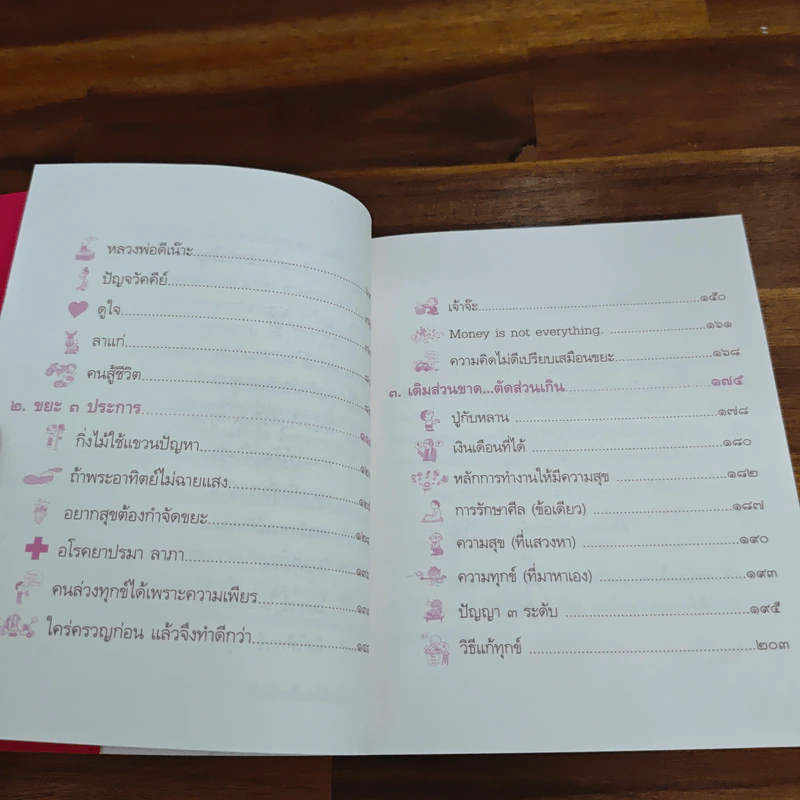 หลวงพ่อดีเน๊าะ
ปัญจวัคคีย์
ดูใจ
ลาแก่
คนสู้ชีวิต
๒. ขยะ ๓ ประการ
กิ่งไม้ใช้แขวนปัญหา
ถ้าพระอาทิตย์ไม่ฉายแสง
อยากสุขต้องกำจัดขยะ
อโรคยาปรมา ลาภา
คนล่วงทุกข์ได้เพราะความเพียร
ใคร่ครวญก่อน แล้วจึงทำดีกว่า
เจ้าจ๊ะ ๑๕๐
Money is not everything. ๑๖๑
ความคิดไม่ดีเปรียบเสมือนขยะ ๑๖๘
๓. เติมส่วนขาด...ตัดส่วนเกิน ๑๗๕
ปู่กับหลาน ๑๗๘
เงินเดือนที่ได้ ๑๘๐
หลักการทำงานให้มีความสุข ๑๘๒
การรักษาศีล (ข้อเดียว) ๑๘๗
ความสุข (ที่แสวงหา) ๑๙๐
ความทุกข์ (ที่มาหาเอง) ๑๙๓
ปัญญา ๓ ระดับ ๑๙๕
วิธีแก้ทุกข์ ๒๐๓